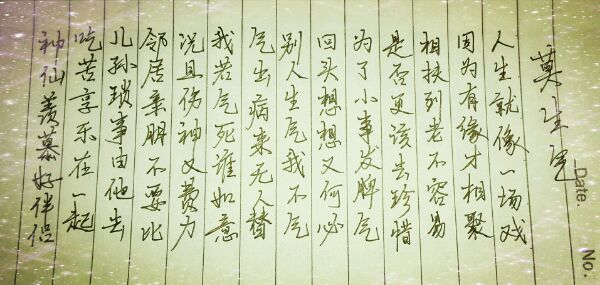 莫生气
人生就像一场戏
因为有缘才相聚
相扶到老不容易
是否更该去珍惜
为了小事发脾气
回头想想又何必
别人生气我不气
气出病来无人替
我若气死谁如意
况且伤神又费力
邻居亲朋不要比
儿孙琐事由他去
吃苦享乐在一起
神仙羡慕好伴侣
Date.
No.